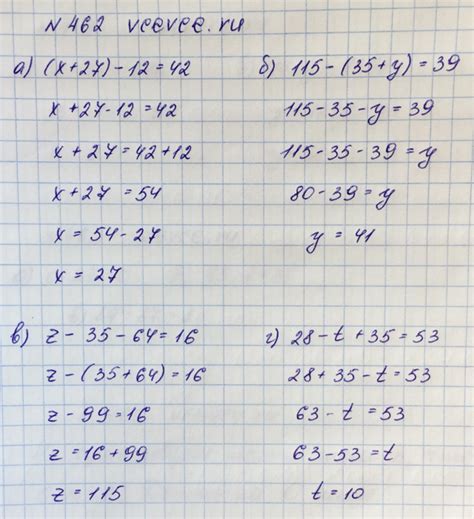 N 462 veevee.ru
а) (x+27)-12=42
x+27-12=42
x+27=42+12
x+27=54
x=54-27
x=27
б) 115-(35+y)=39
115-35-y=39
115-35-39=y
80-39=y
y=41
в) z-35-64=16
z-(35+64)=16
z-99=16
z=16+99
z=115
г) 28-t+35=53
28+35-t=53
63-t=53
63-53=t
t=10